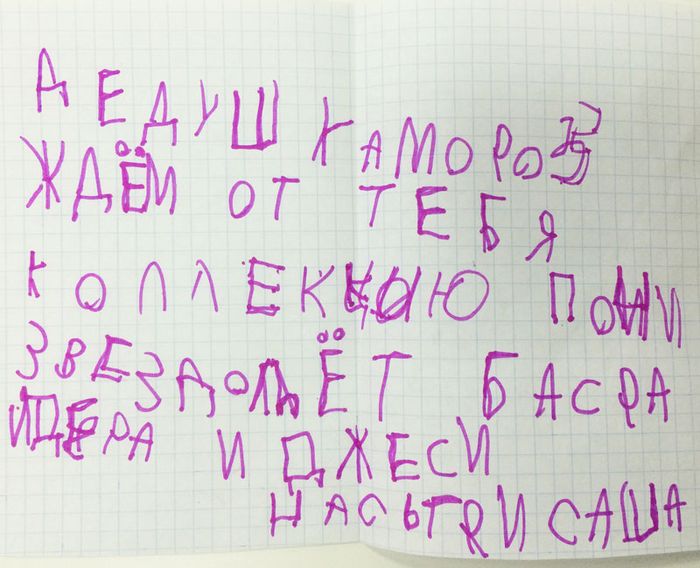 ДЕДУШКАМОРОЗ
ЖДЁМ ОТ ТЕБЯ
КОЛЛЕКЦЫЮ ПОНИ
ЗВЕЗДОЛЬЁТ БАСРА
ИДЕРА И ДЖЕСИ
НАСЬТЯ И САША